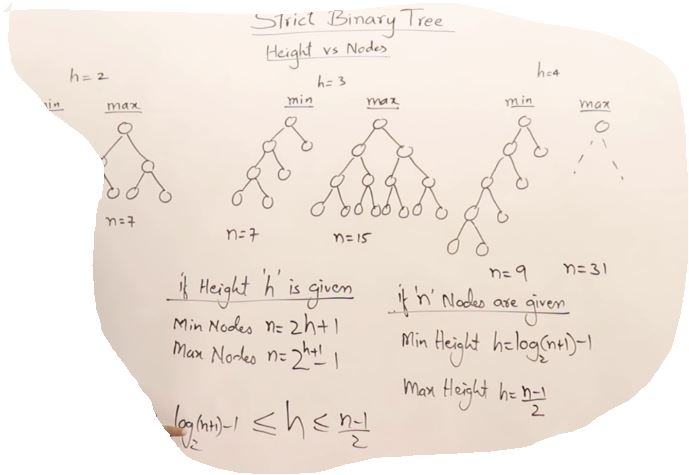 Strict Binary Tree
Height vs Nodes
h=2
h=3
h=4
max
min
max
min
max
n=7
n=7
n=15
n=9
n=31
if Height 'h' is given
Min Nodes n=2h+1
Max Nodes n=2^(h+1)-1
if 'n' Nodes are given
Min Height h=log₂(n+1)-1
Max Height h=n-1/2
log₂(n+1)-1 ≤ h ≤ n-1/2